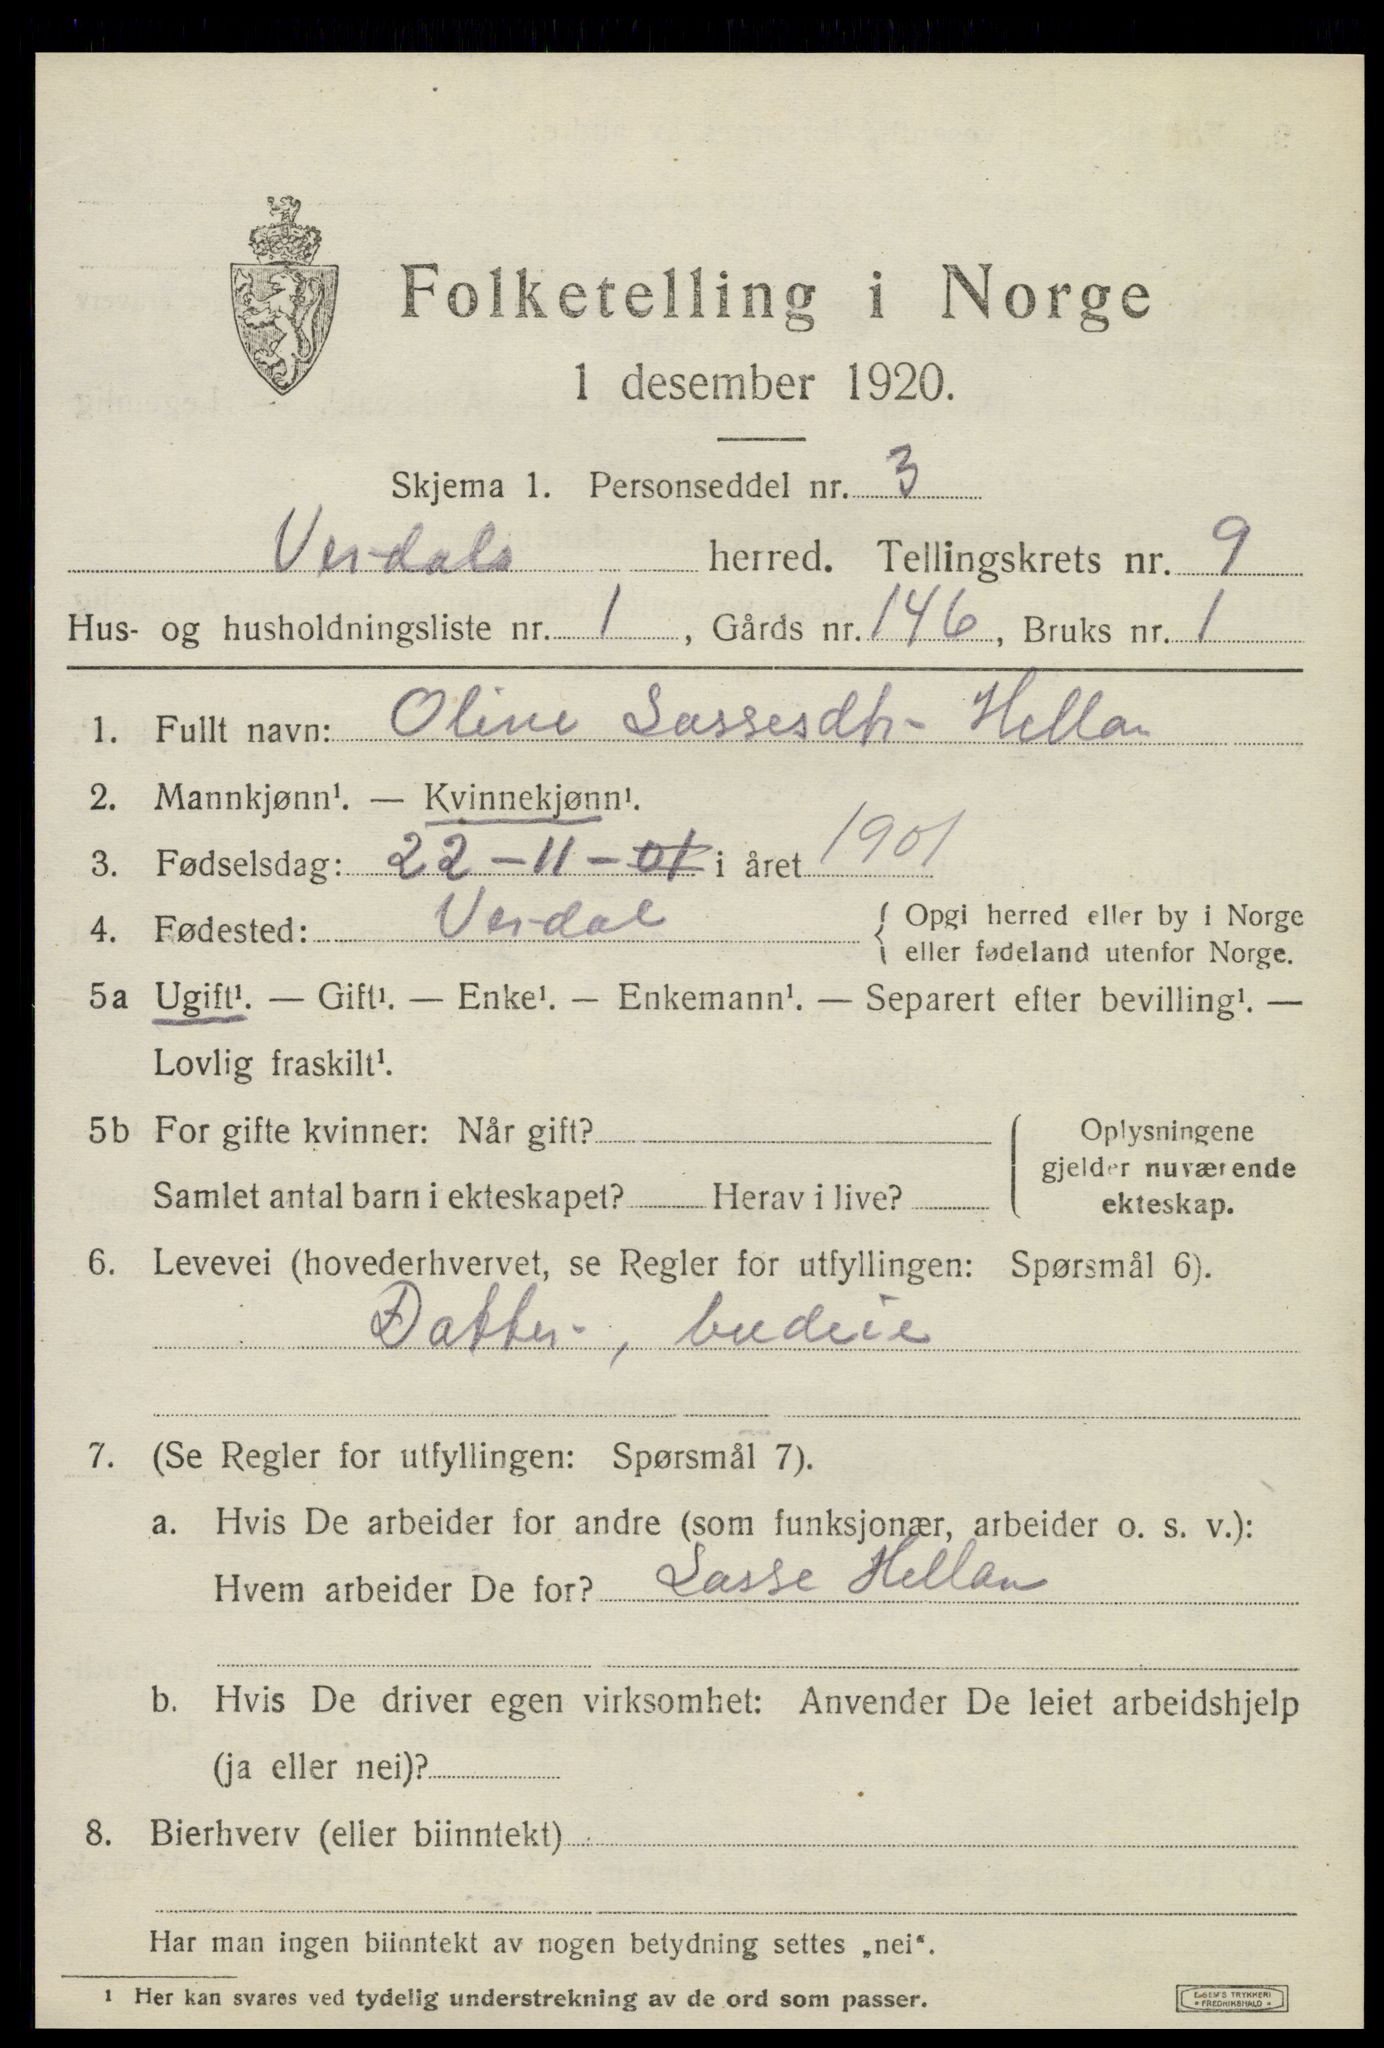 Folketelling i Norge
1 desember 1920.
Skjema 1. Personseddel nr. 3
Verdals herred. Tellingskrets nr. 9
Hus- og husholdningsliste nr. 1, Gårds nr. 146, Bruks nr. 1
1. Fullt navn: Oline Lassesdtr Hellan
2. Mannkjønn¹. — Kvinnekjønn¹.
3. Fødselsdag: 22-11-01 i året 1901
4. Fødested: Verdal { Opgi herred eller by i Norge
eller fødeland utenfor Norge.
5a Ugift¹. — Gift¹. — Enke¹. — Enkemann¹. — Separert efter bevilling¹. —
Lovlig fraskilt¹.
5b For gifte kvinner: Når gift?
Samlet antal barn i ekteskapet? Herav i live?
Oplysningene
gjelder nuværende
ekteskap.
6. Levevei (hovederhvervet, se Regler for utfyllingen: Spørsmål 6).
Datter, budeie
7. (Se Regler for utfyllingen: Spørsmål 7).
a. Hvis De arbeider for andre (som funksjonær, arbeider o. s. v.):
Hvem arbeider De for? Lasse Hellan
b. Hvis De driver egen virksomhet: Anvender De leiet arbeidshjelp
(ja eller nei)?
8. Bierhverv (eller biinntekt)
Har man ingen biinntekt av nogen betydning settes „nei“.
1 Her kan svares ved tydelig understrekning av de ord som passer.
E. SEM'S TRYKKERI
FREDRIKSHALD